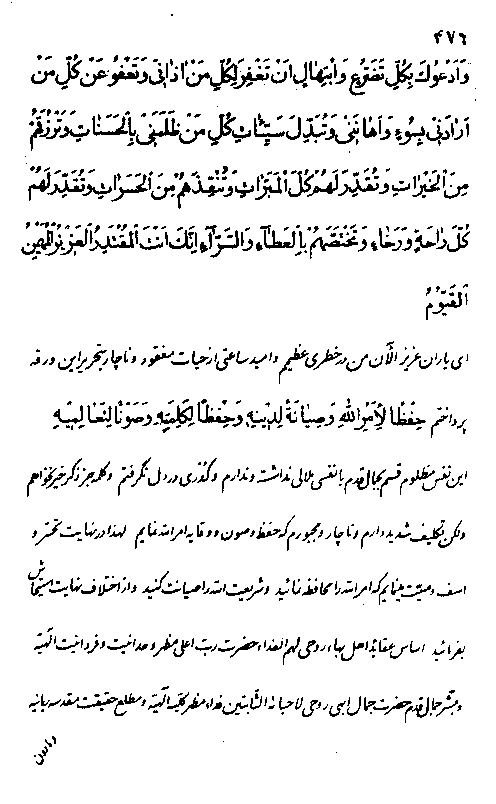 ۴۷۶
وَاَدْعُوكَ بِكُلِّ تَضَرُّعٍ وَابْتِهَالٍ اَنْ تَغْفِرَ لِكُلِّ مَنْ اٰذَانِی وَتَعْفُوَ عَنْ كُلِّ مَنْ
اَرَادَنِی بِسُوءٍ وَاَهَانَنِی وَتُبَدِّلَ سَيِّئَاتِ كُلِّ مَنْ ظَلَمَنِی بِالْحَسَنَاتِ وَتَرْزُقَهُمْ
مِنَ الْخَيْرَاتِ وَتُقَدِّرَ لَهُمْ كُلَّ الْمَبَرَّاتِ وَتُنْقِذَهُمْ مِنَ الْحَسَرَاتِ وَتُقَدِّرَ لَهُمْ
كُلَّ رَاحَةٍ وَرَخَاءٍ وَتَخْتَصَّهُمْ بِالْعَطَاءِ وَالسَّرَّاءِ اِنَّكَ اَنْتَ الْمُقْتَدِرُ الْعَزِيزُ الْمُهَيْمِنُ
الْقَيُّومُ
ای یاران عزیز الآن من در خطری عظیم و امید ساعتی از حیات مفقود و ناچار بتحریر این ورقه
پرداختم حِفْظًا لِاَمْرِ اللهِ وَصِيَانَةً لِدِينِهِ وَحِفْظًا لِكَلِمَتِهِ وَصَوْنًا لِتَعَالِيمِهِ
این نفس مظلوم قسم بجمال قدم با نفسی ملالی نداشته و ندارم و کدری در دل نگرفتم و کلمه‌ئی جز ذکر خیر نخواهم
ولکن تکلیف شدید دارم و ناچار و مجبورم که حفظ و صون و وقایه امرالله نمایم لهذا در نهایت تحسّر و
اسف وصیّت مینمایم که امرالله را محافظه نمائید و شریعت الله را صیانت کنید و از اختلاف نهایت استیحاش
بفرمائید اساس عقائد اهل بهاء روحی لهم الفداء حضرت ربّ اعلی مظهر وحدانیّت و فردانیّت الهیّه
و مبشّر جمال قدم حضرت جمال ابهی روحی لاحبّائه الثّابتین فداء مظهر کلّیّه الهیّه و مطلع حقیقت مقدّسه ربّانیّه
و مادون